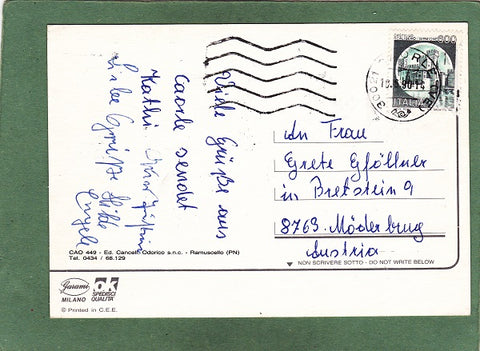 Viele Grüße aus
Caorle sendet
Kathi
Liebe Grüße Hilde
Engele
An Frau
Grete Gföllner
in Bretstein 9
8763 Möderbrug
Austria
CAO 449 - Ed. Cancelli Odorico s.n.c. - Ramuscello (PN)
Tel. 0434 / 68.129
▼ NON SCRIVERE SOTTO - DO NOT WRITE BELOW
Garami
MILANO
ok
SPEDISCI
QUALITA'
© Printed in C.E.E.
600
ITALIA